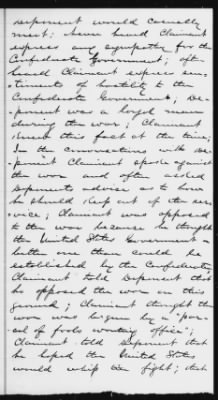 deponent would casually
meet; never heard Claimant
express any sympathy for the
Confederate Government; often
heard Claimant express sen-
timents of hostility to the
Confederate Government; De-
ponent was a loyal man
during the war; Claimant
knew this fact at the time;
In the conversations with De-
ponent Claimant spoke against
the war and often asked
deponents advise as to how
he should keep out of the ser-
vice; Claimant was opposed
to the war because he thought
the United States Government a
better one than could be
established by the Confederates
Claimant told Deponent that
he opposed the war on this
ground; Claimant thought the
war was begun by a "par-
cel of fools wanting office";
Claimant told Deponent that
he hoped the United States
would whip the fight; that